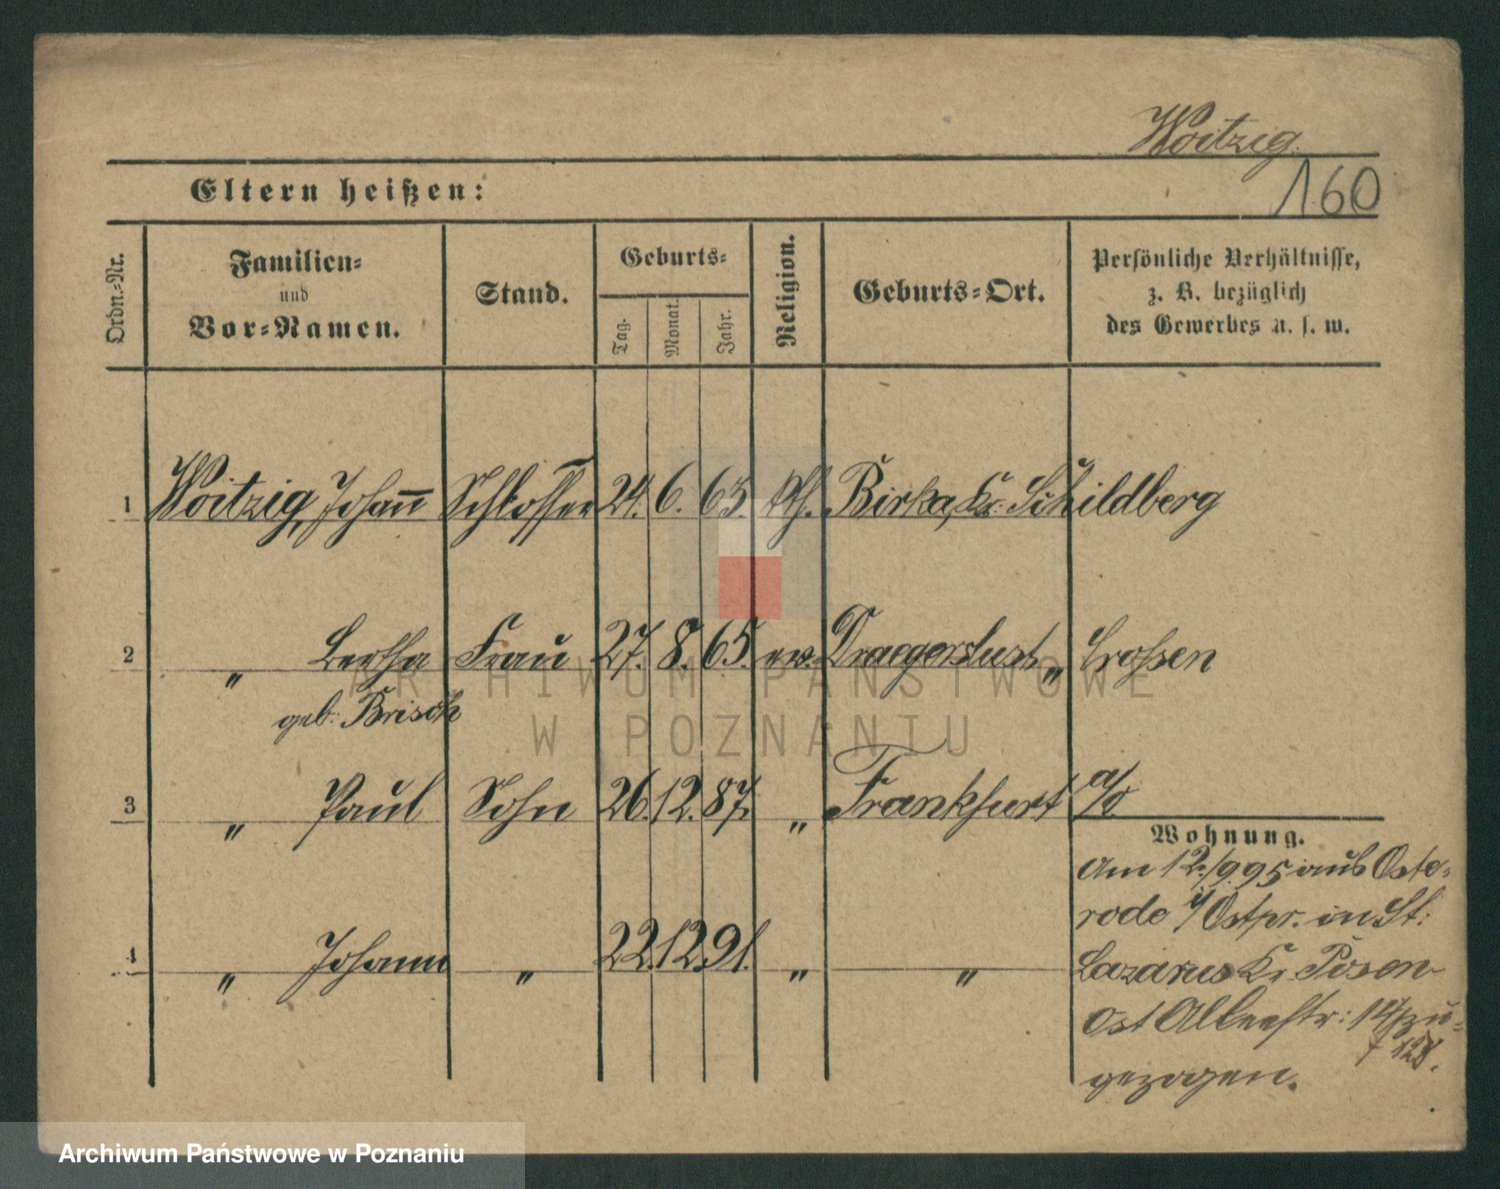 Woitzig.
160
Eltern heißen:
Ordn.-Nr.
Familien-
und
Vor-Namen.
Stand.
Geburts-
Tag.
Monat.
Jahr.
Religion.
Geburts-Ort.
Persönliche Verhältnisse,
z. B. bezüglich
des Gewerbes u. s. w.
1 Woitzig, Johann Schlosser 24. 6. 63. kth. Birka, Kr. Schildberg
2 " Bertha Frau 27. 8. 65. ev. Draegerslust, " Crossen
geb. Brisch
3 " Paul Sohn 26. 12. 87. " Frankfurt a/O
4 " Johann " 22. 12. 91. " "
Wohnung.
Am 12./9.95 aus Oste-
rode i/Ostpr. in St.
Lazarus Kr. Posen
Ost Alleestr: 14 zu-
128.
gezogen.
ARCHIWUM PAŃSTWOWE
W POZNANIU
Archiwum Państwowe w Poznaniu